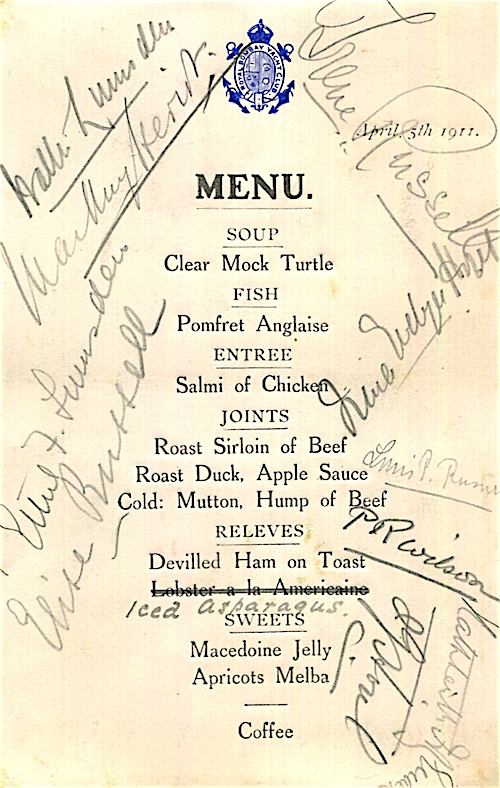 ROYAL BOMBAY YACHT CLUB
April. 5th 1911.
MENU.
SOUP
Clear Mock Turtle
FISH
Pomfret Anglaise
ENTREE
Salmi of Chicken
JOINTS
Roast Sirloin of Beef
Roast Duck, Apple Sauce
Cold: Mutton, Hump of Beef
RELEVES
Devilled Ham on Toast
Lobster a la Americaine
Iced Asparagus.
SWEETS
Macedoine Jelly
Apricots Melba
Coffee
Lumsden
Russell
Ethel F. Lumsden
Elise Russell
PR Wilson